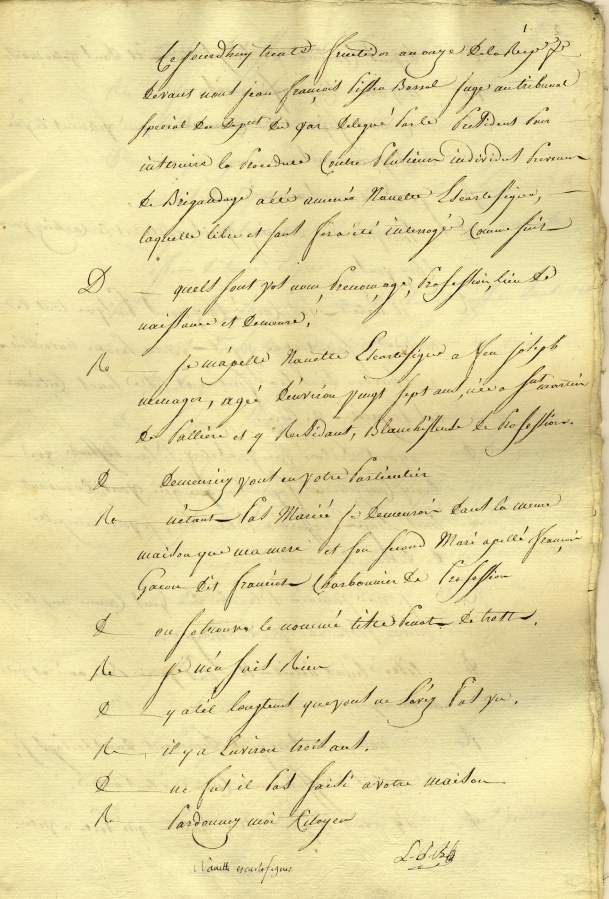 Ce Jourdhuy trente fructidor an onze De la Rep.e f.se
Devant nous jean françois Juge au tribunal
spécial du Dep.t du var Delegué Par le President Pour
instruire la Procedure Contre Plusieurs individus Prevenus
de Brigandage a été amenée Nanette Escartefigue,
laquelle libre et sans fers a été interrogé Comme suit
D quels sont vos nom, Prenom, age, Profession, lieu de
naissance et Demeure.
R Je m'apelle Nanette Escartefigue a feu joseph
menager, agée Denviron vingt sept ans, née a S.t martin
de Palliere et y Residant, Blanchisseuse de Profession.
D Demeuriez vous en votre Particulier
R n'étant Pas Mariée je Demeurois Dans la meme
maison que ma mere et son second Mari apellé françois
Gacon dit francois Charbonnier de Profession
D ou se trouve le nommé titre de trets.
R Je n'en sais Rien
D y atil longtems que vous ne lavez Pas vu.
R il y a Environ trois ans.
D ne fut il Pas saisi a votre maison
R Pardonnez moi Citoyen
Nanette escartefigue